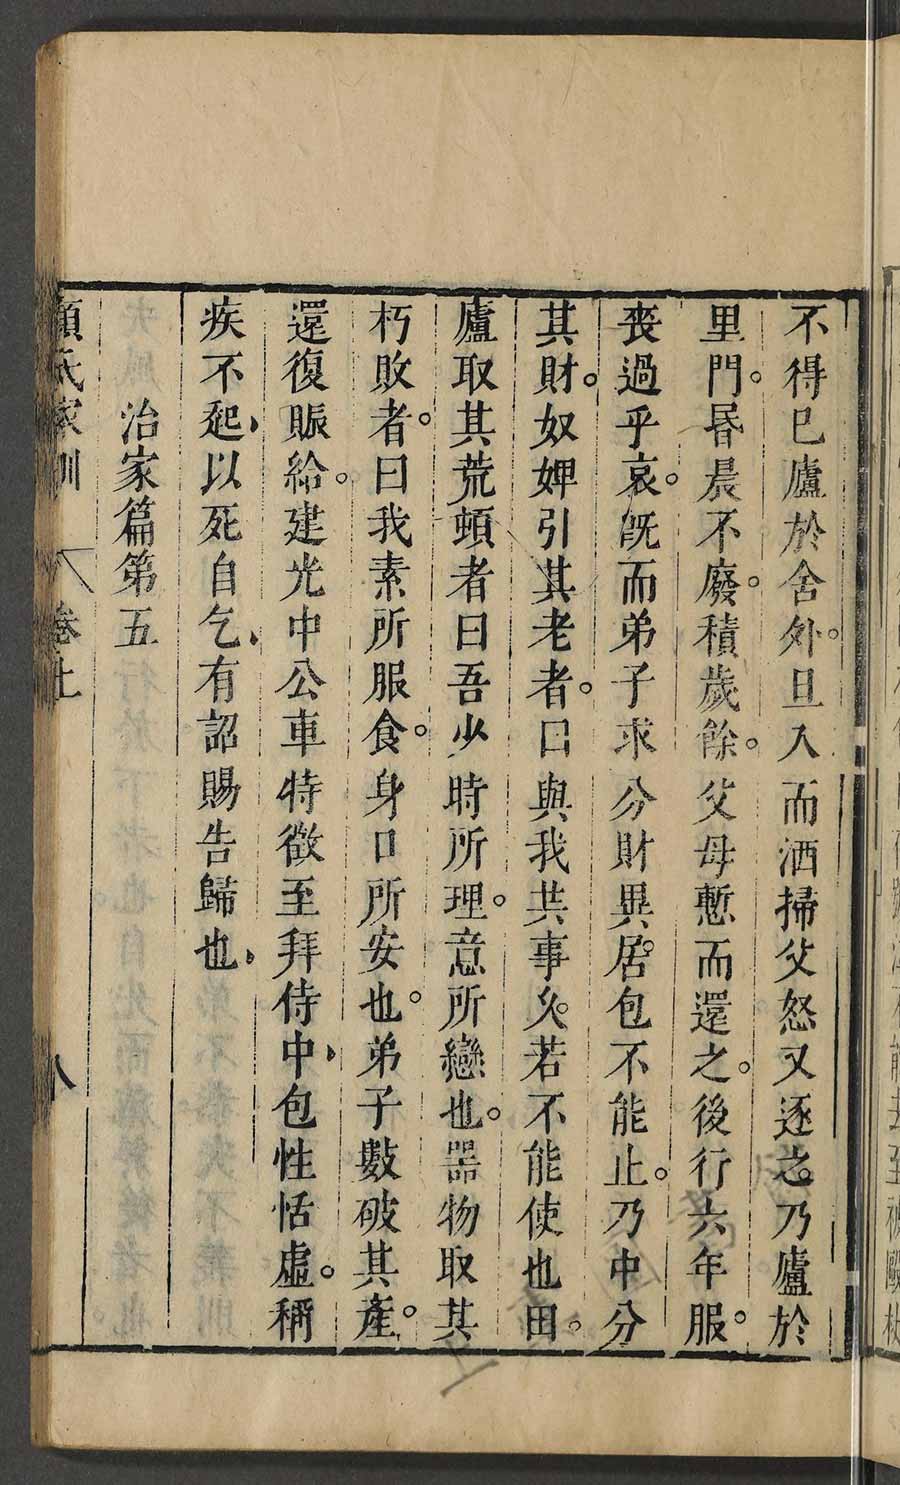 不得已廬於舍外。旦入而洒掃父怒又逐之。乃廬於
里門。昬晨不廢。積歲餘。父母慙而還之。後行六年服。
喪過乎哀。旣而弟子求分財異居。包不能止。乃中分
其財。奴婢引其老者。曰與我共事久。若不能使也田。
廬取其荒頓者曰吾少時所理。意所戀也。器物取其
朽敗者。曰我素所服食。身口所安也。弟子數破其產。
還復賑給。建光中公車特徵至拜侍中、包性恬虛。稱
疾不起、以死自乞、有詔賜告歸也、
治家篇第五
顏氏家訓 卷上 八